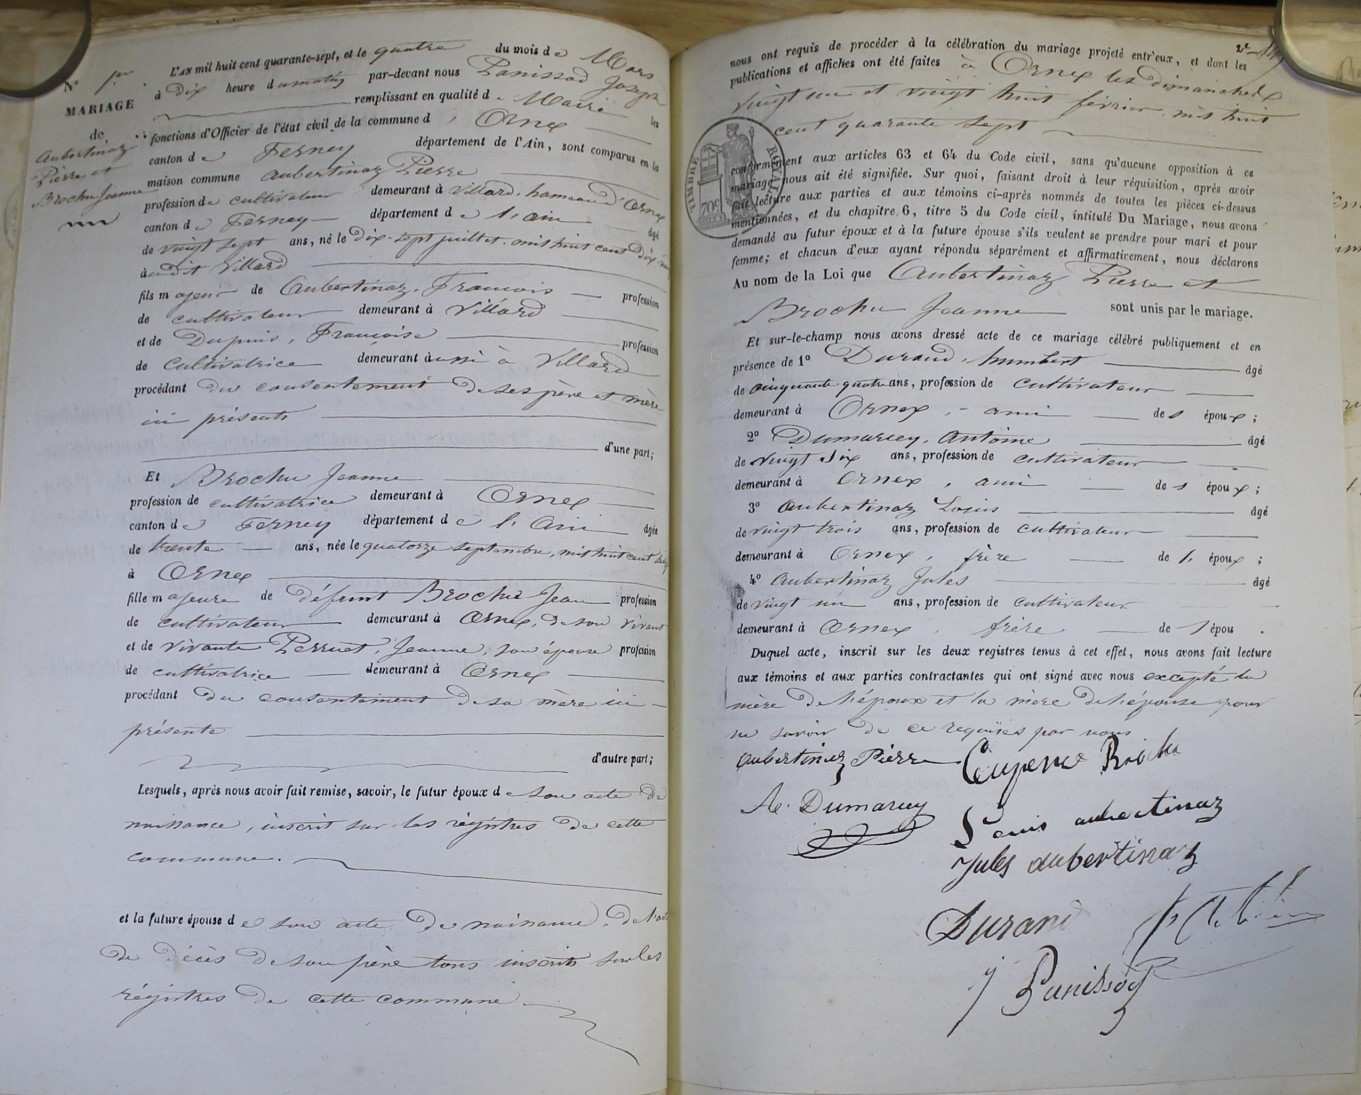 N° 1er
MARIAGE
de
Aubertinaz
Pierre et
Brochu Jeanne
L'AN mil huit cent quarante-sept, et le quatre du mois de Mars
à dix heure du matin par-devant nous Panissod Joseph
remplissant en qualité de Maire les
fonctions d'Officier de l'état civil de la commune d'Ornex
canton de Ferney département de l'Ain, sont comparus en la
maison commune Aubertinaz Pierre
profession de cultivateur demeurant à Villard, hameau d'Ornex
canton de Ferney département de l'ain âgé
de vingt sept ans, né le dix-sept juillet, mil huit cent dix neuf
à audit Villard
fils majeur de Aubertinaz, François profession
de cultivateur demeurant à Villard
et de Dupuis, Françoise profession
de Cultivatrice demeurant à aussi à Villard
procédant du consentement de ses père et mère
ici présents
d'une part;
Et Brochu Jeanne
profession de cultivatrice demeurant à Ornex
canton de Ferney département de l'Ain âgée
de trente ans, née le quatorze septembre, mil huit cent seize
à Ornex
fille majeure de défunt Brochu Jean profession
de cultivateur demeurant à Ornex, de son vivant
et de vivante Perruet, Jeanne, son épouse profession
de cultivatrice demeurant à Ornex
procédant du consentement de sa mère ici
présente
d'autre part;
Lesquels, après nous avoir fait remise, savoir, le futur époux de son acte de
naissance, inscrit sur les régistres de cette
commune.
et la future épouse de son acte de naissance, de l'acte
de décès de son père tous inscrits sur les
régistres de cette commune
nous ont requis de procéder à la célébration du mariage projeté entr'eux, et dont les
publications et affiches ont été faites à Ornex les dimanches
vingt un et vingt huit février, mil huit
cent quarante sept
TIMBRE ROYAL
70c
conformément aux articles 63 et 64 du Code civil, sans qu'aucune opposition à ce
mariage nous ait été signifiée. Sur quoi, faisant droit à leur réquisition, après avoir
fait lecture aux parties et aux témoins ci-après nommés de toutes les pièces ci-dessus
mentionnées, et du chapitre 6, titre 5 du Code civil, intitulé Du Mariage, nous avons
demandé au futur époux et à la future épouse s'ils veulent se prendre pour mari et pour
femme; et chacun d'eux ayant répondu séparément et affirmativement, nous déclarons
Au nom de la Loi que Aubertinaz Pierre et
Brochu Jeanne sont unis par le mariage.
Et sur-le-champ nous avons dressé acte de ce mariage célébré publiquement et en
présence de 1° Durand, humbert âgé
de cinquante quatre ans, profession de cultivateur
demeurant à Ornex, ami des époux;
2° Dumarcey, Antoine âgé
de vingt six ans, profession de cultivateur
demeurant à Ornex, ami des époux;
3° Aubertinaz Louis âgé
de vingt trois ans, profession de cultivateur
demeurant à Ornex, frère de l'époux;
4° Aubertinaz Jules âgé
de vingt un ans, profession de cultivateur
demeurant à Ornex, frère de l'épou .
Duquel acte, inscrit sur les deux registres tenus à cet effet, nous avons fait lecture
aux témoins et aux parties contractantes qui ont signé avec nous excepté la
mère de l'époux et la mère de l'épouse pour
ne savoir de ce requises par nous
Aubertinaz Pierre
A. Dumarcey
Louis aubertinaz
Jules aubertinaz
Durand
J Panissod